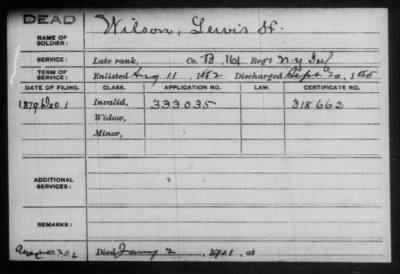 DEAD
NAME OF SOLDIER: Wilson, Lewis H.
SERVICE: Late rank, Co. B, 161 Reg't N.Y. Inf
TERM OF SERVICE: Enlisted Aug 11, 1862 Discharged Sept 20, 1865
DATE OF FILING. CLASS. APPLICATION NO. LAW. CERTIFICATE NO.
1879 Dec. 1 Invalid, 333035 318662
Widow,
Minor,
ADDITIONAL SERVICES:
REMARKS:
Died Jany 2, 1921, at